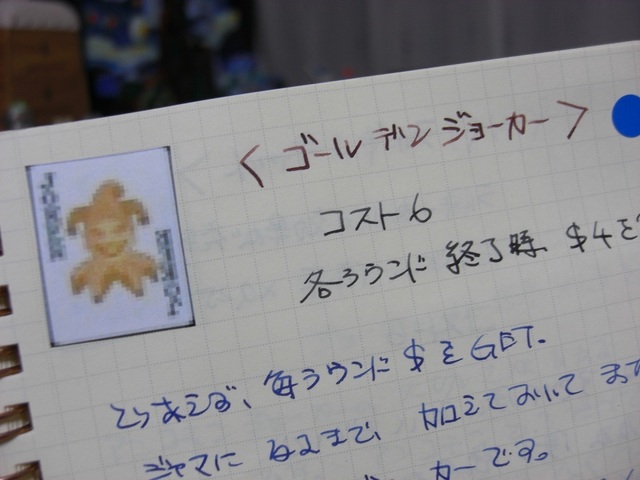 <ゴールデンジョーカー>
コスト6
各ラウンド終了時、$4を
とりあえず、毎ラウンドに$をGET.
ジャマになるまで、加えておいてます
カーです。